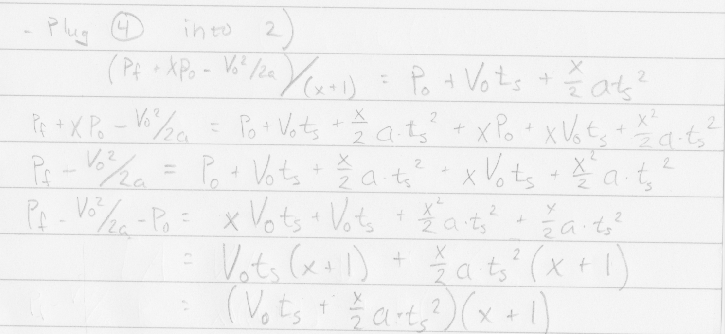 - Plug ④ into 2)
(Pf + xPo - Vo²/2a)/(x+1) = Po + Vots + x/2 ats²
Pf + xPo - Vo²/2a = Po + Vots + x/2 a·ts² + xPo + xVots + x²/2 a·ts²
Pf - Vo²/2a = Po + Vots + x/2 a·ts² + xVots + x²/2 a·ts²
Pf - Vo²/2a - Po = xVots + Vots + x²/2 a·ts² + x/2 a·ts²
= Vots(x+1) + x/2 a ts²(x+1)
= (Vots + x/2 a·ts²)(x+1)